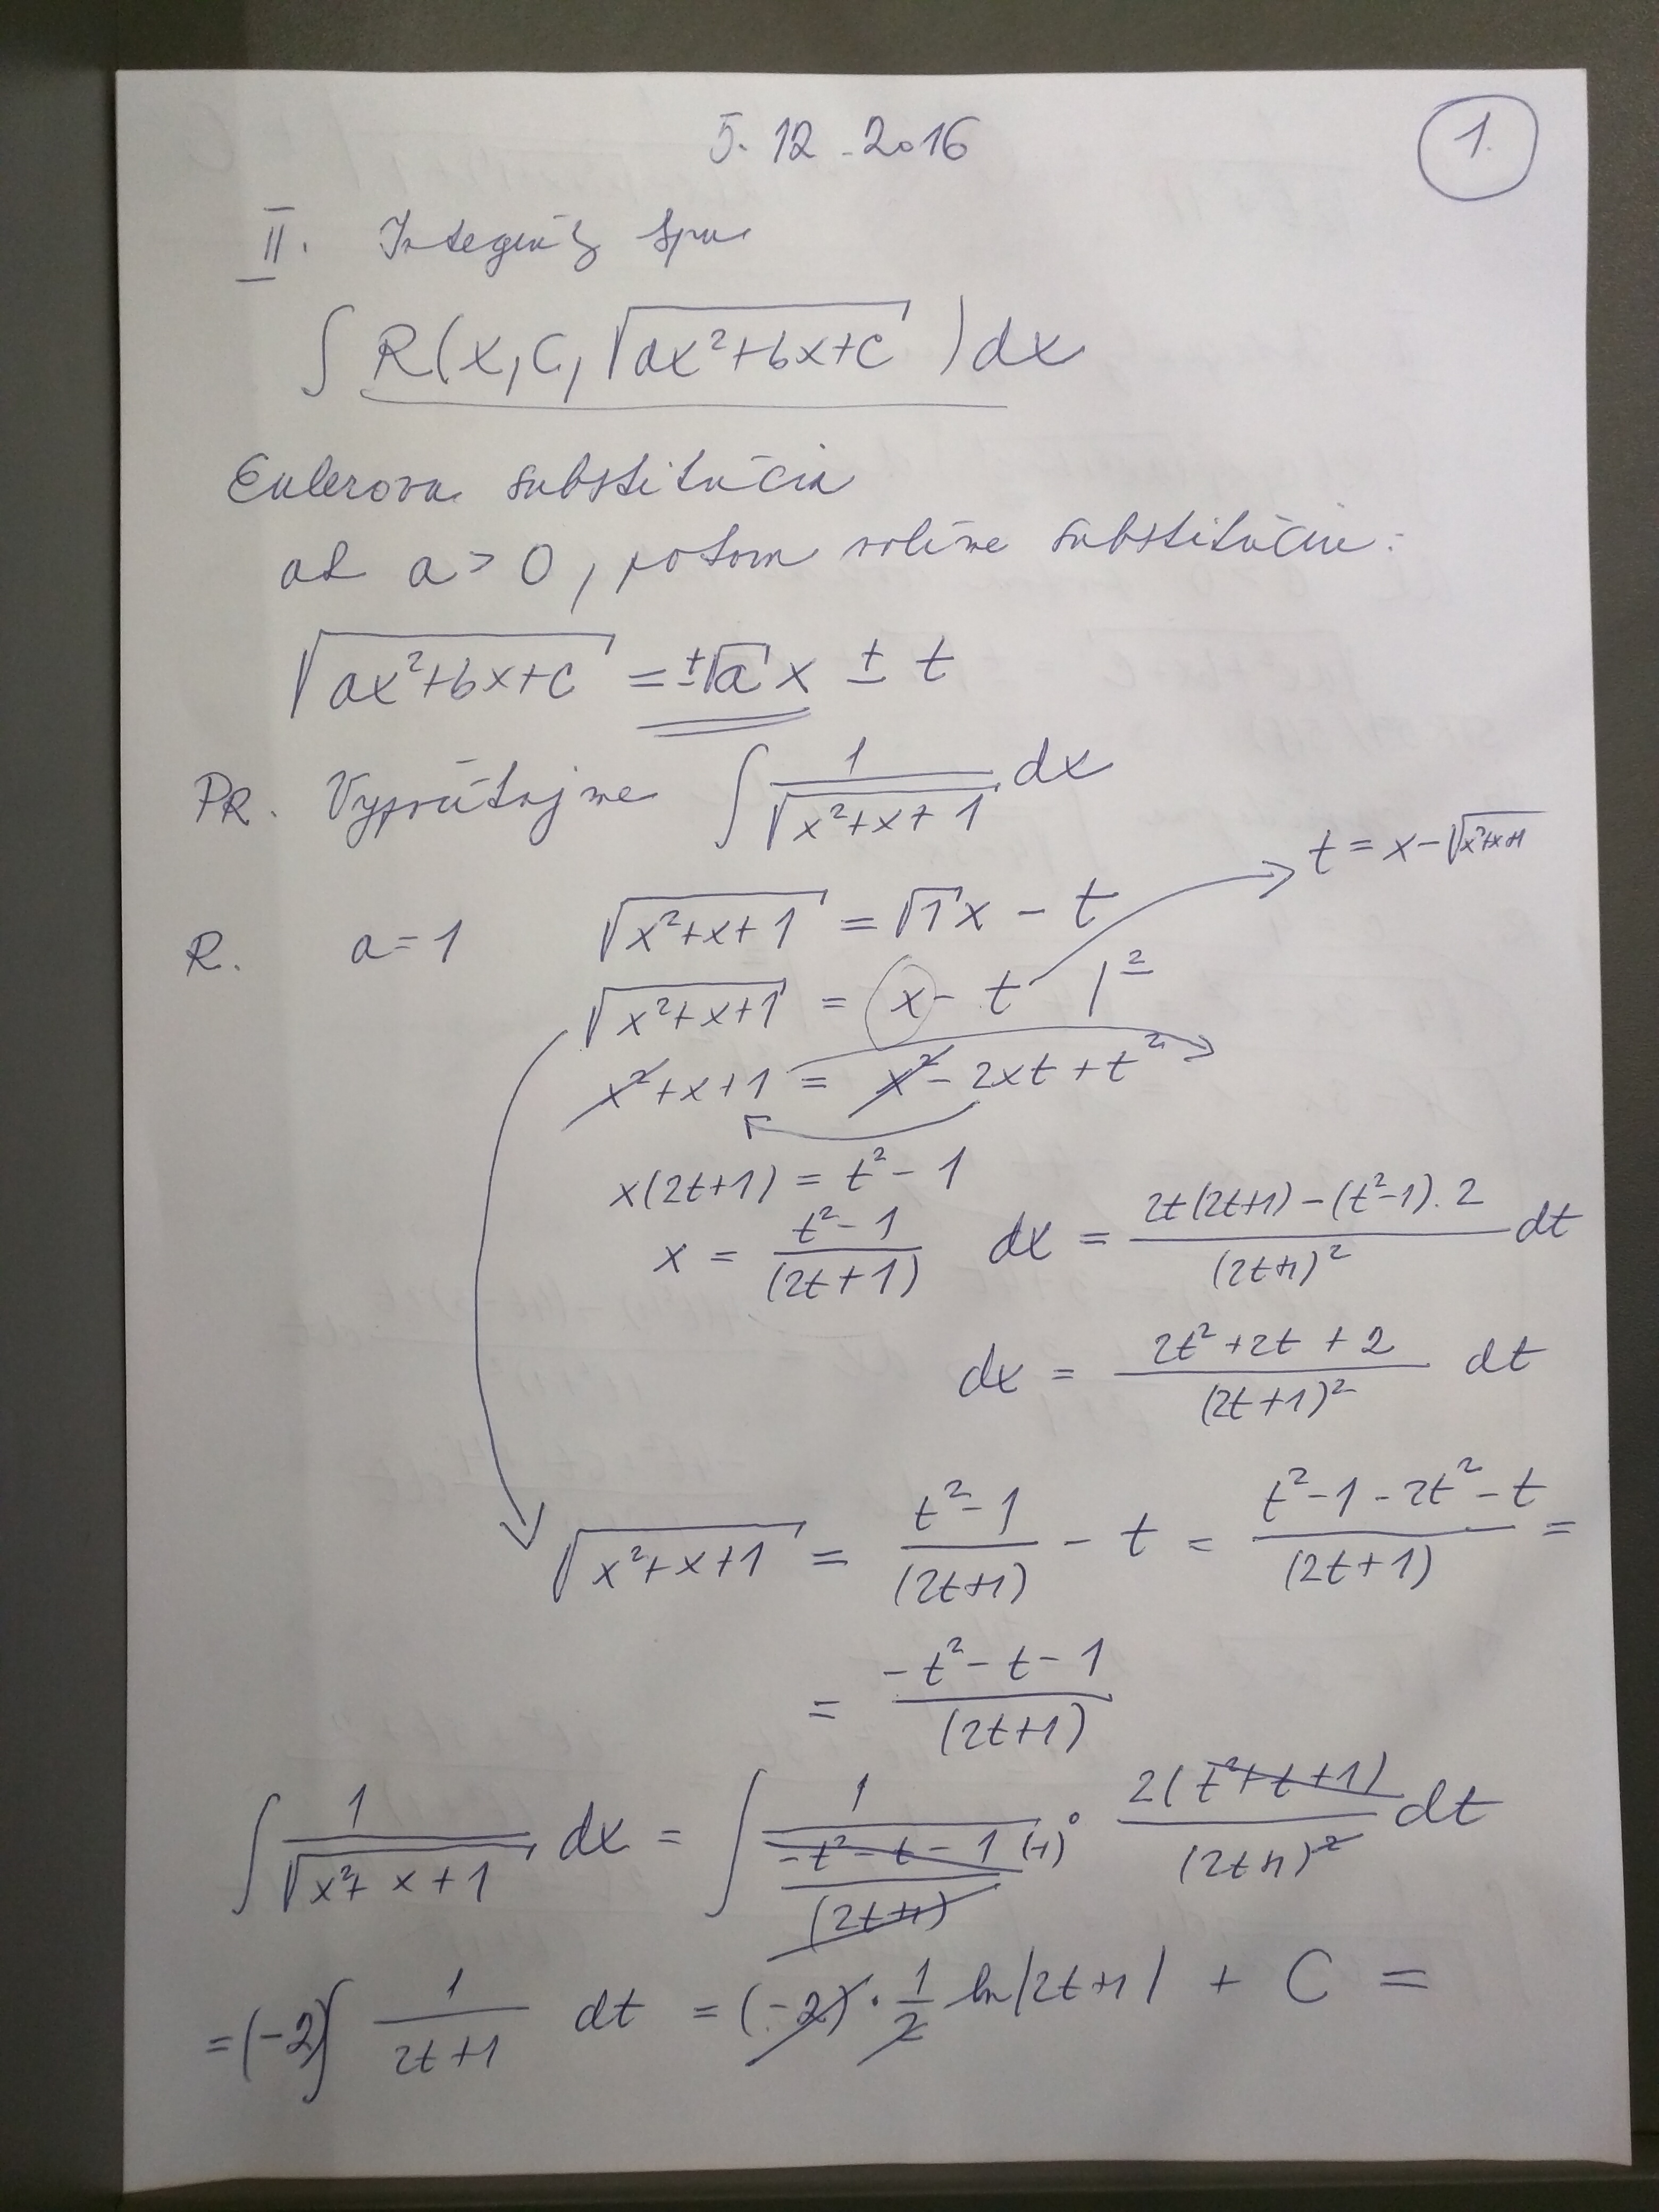 5. 12. 2016
1.
II. Integrály typu
∫ R(x, C, √(ax²+bx+c)) dx
Eulerova substitúcia
ak a > 0, potom volíme substitúciu:
√(ax²+bx+c) = ±√a x ± t
PR. Vypočítajme ∫ 1/√(x²+x+1) dx
t = x - √(x²+x+1)
R. a = 1 √(x²+x+1) = √1 x - t
√(x²+x+1) = x - t /²
x²+x+1 = x² - 2xt + t²
x(2t+1) = t² - 1
x = (t² - 1)/(2t+1) dx = (2t(2t+1) - (t²-1).2)/(2t+1)² dt
dx = (2t² + 2t + 2)/(2t+1)² dt
√(x²+x+1) = (t² - 1)/(2t+1) - t = (t² - 1 - 2t² - t)/(2t+1) =
= (-t² - t - 1)/(2t+1)
∫ 1/√(x²+x+1) dx = ∫ 1/((-t² - t - 1)/(2t+1)) (-1) · 2(t²+t+1)/(2t+1)² dt
= (-2) ∫ 1/(2t+1) dt = (-2) · 1/2 ln|2t+1| + C =